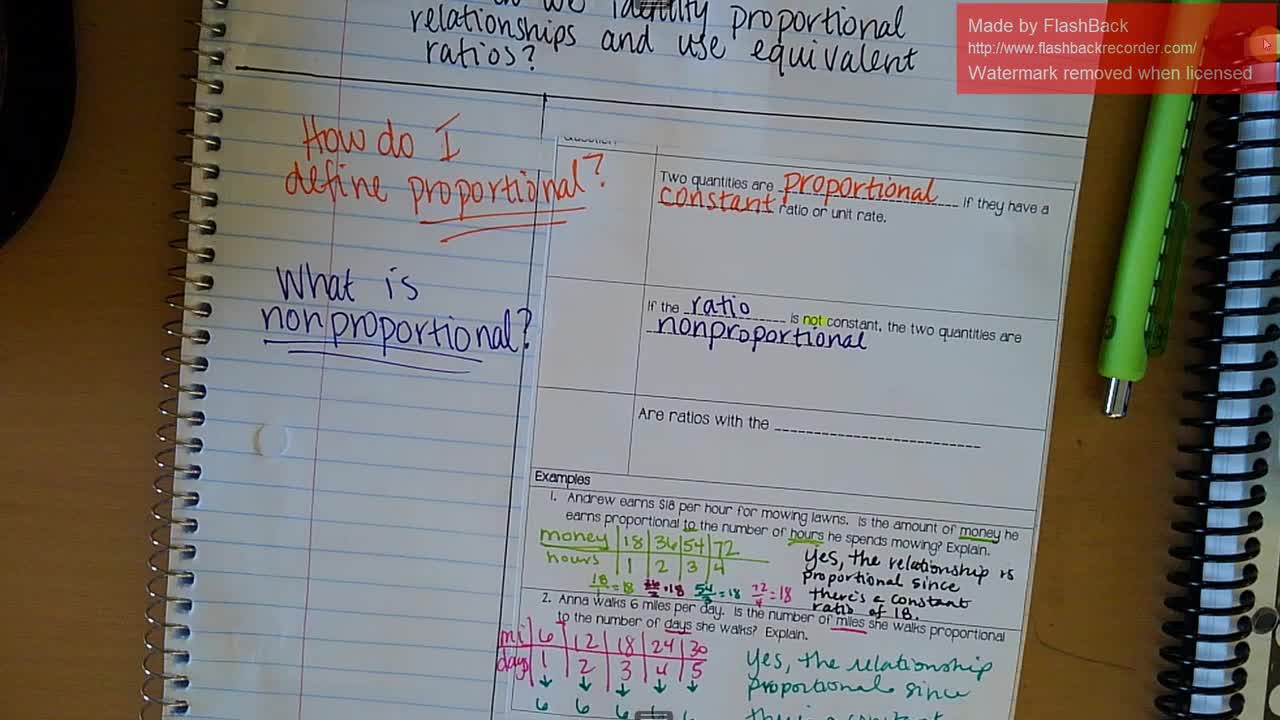 we identify proportional
relationships and use equivalent
ratios?
Made by FlashBack
http://www.flashbackrecorder.com/
Watermark removed when licensed
How do I
define proportional?
Two quantities are proportional if they have a
constant ratio or unit rate.
What is
nonproportional?
If the ratio is not constant, the two quantities are
nonproportional
Are ratios with the
Examples
1. Andrew earns $18 per hour for mowing lawns. Is the amount of money he
earns proportional to the number of hours he spends mowing? Explain.
money 18 36 54 72
hours 1 2 3 4
18/1 = 18 36/2 = 18 54/3 = 18 72/4 = 18
yes, the relationship is
proportional since
there's a constant
ratio of 18.
2. Anna walks 6 miles per day. Is the number of miles she walks proportional
to the number of days she walks? Explain.
mi 6 12 18 24 30
days 1 2 3 4 5
↓ ↓ ↓ ↓ ↓
6 6 6
yes, the relationship
proportional since